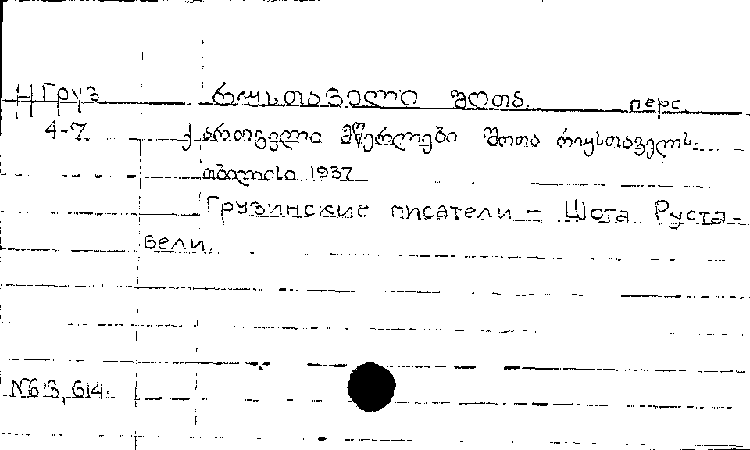 Н Груз
4-7.
რუსთაველი შოთა. перс.
ქართველი მწერლები შოთა რუსთაველს.
თბილისი 1937
Грузинские писатели - Шота Руста-
вели.
№63,614.